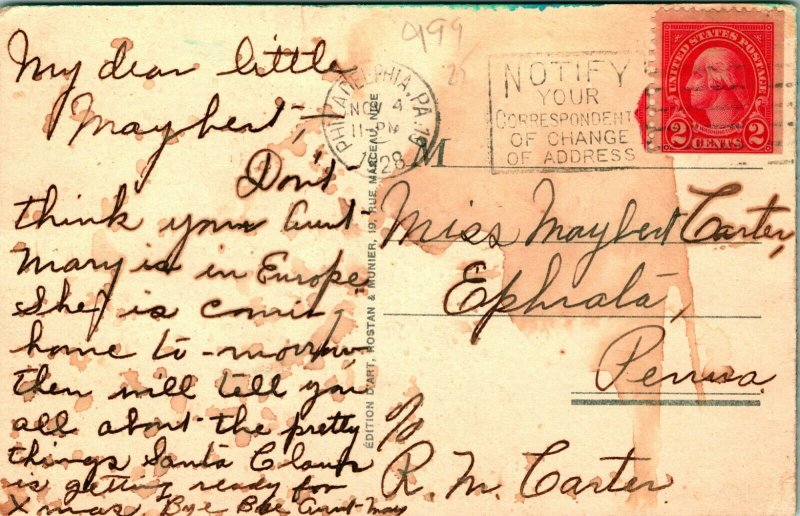 My dear little
Maybert,-
Don't
think your Aunt
Mary is in Europe
She is coming
home to-morrow,
then will tell you
all about the pretty
things Santa Claus
is getting ready for
Xmas. Bye Bye Aunt May
999
PHILADELPHIA, PA. 19
NOV 4
11-PM
1928
NOTIFY
YOUR
CORRESPONDENTS
OF CHANGE
OF ADDRESS
UNITED STATES POSTAGE
WASHINGTON
2 CENTS 2
ÉDITION D'ART, ROSTAN & MUNIER, 19, RUE MARCEAU, NICE
M
Miss Maybert Carter,
Ephrata,
Penna.
c/o
R. M. Carter